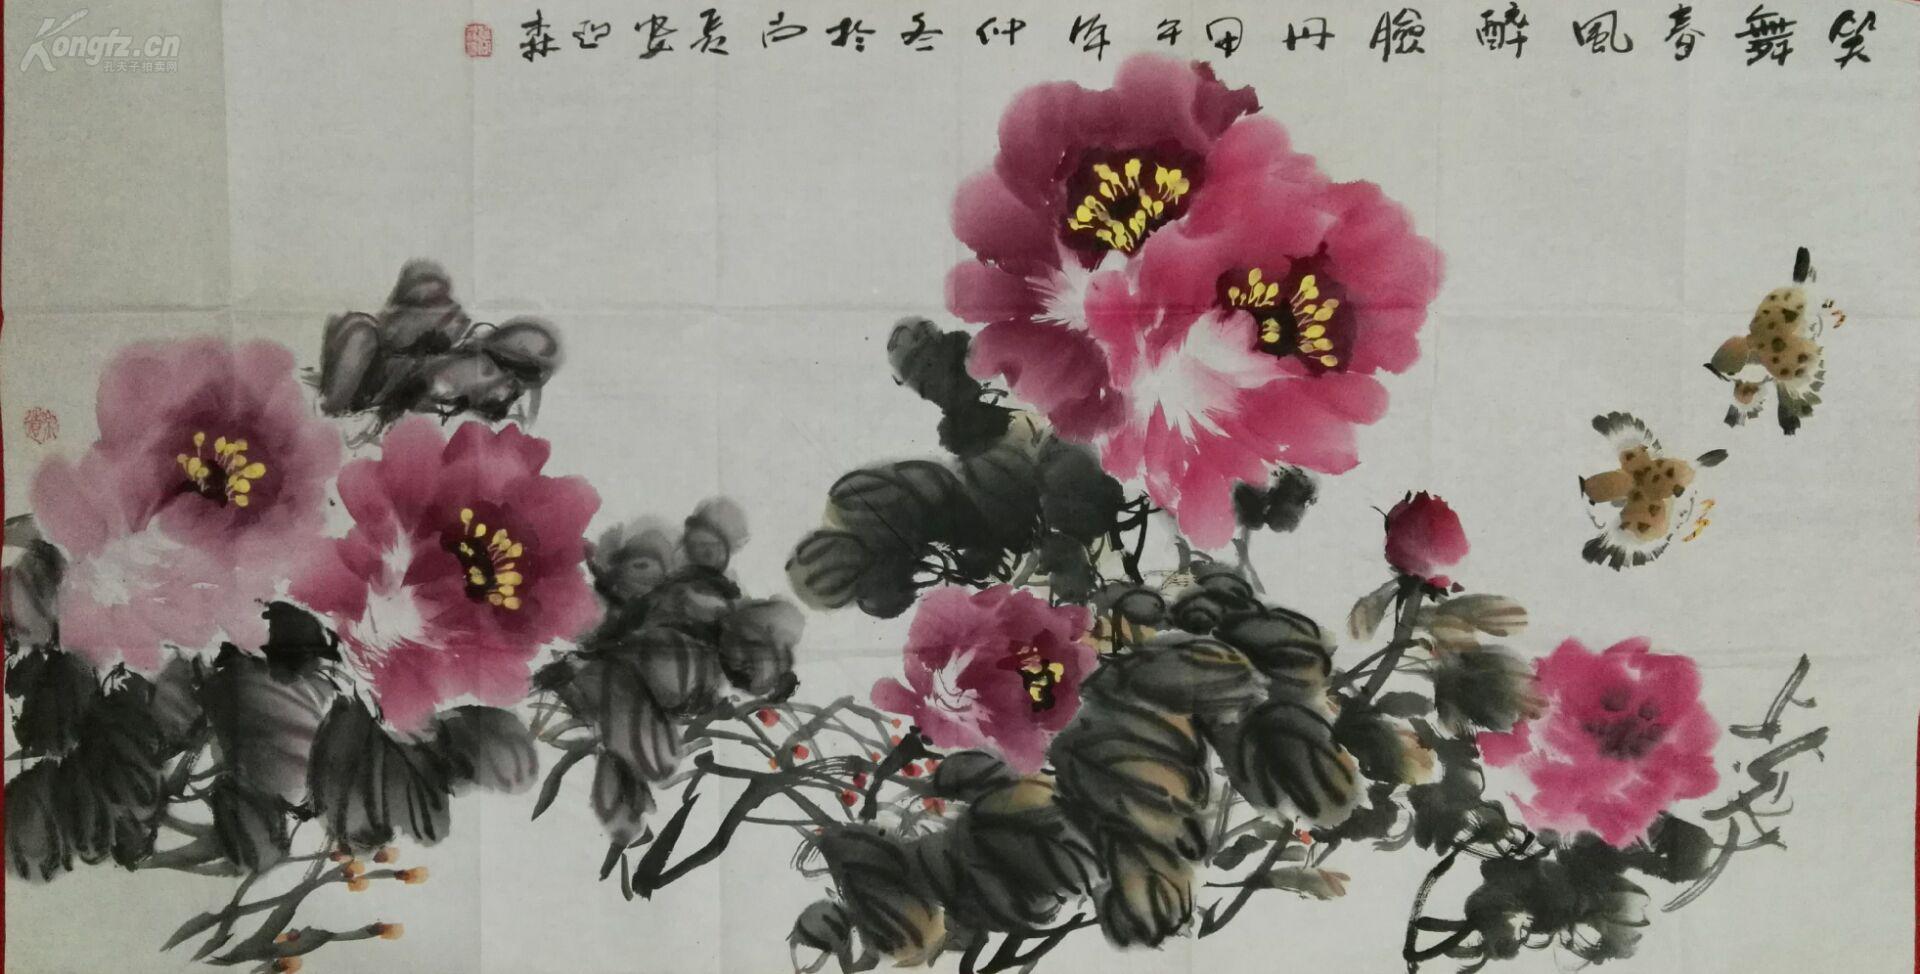 笑舞春風醉臉丹甲午年仲冬於古長安迎森
Kongfz.cn
孔夫子拍卖网